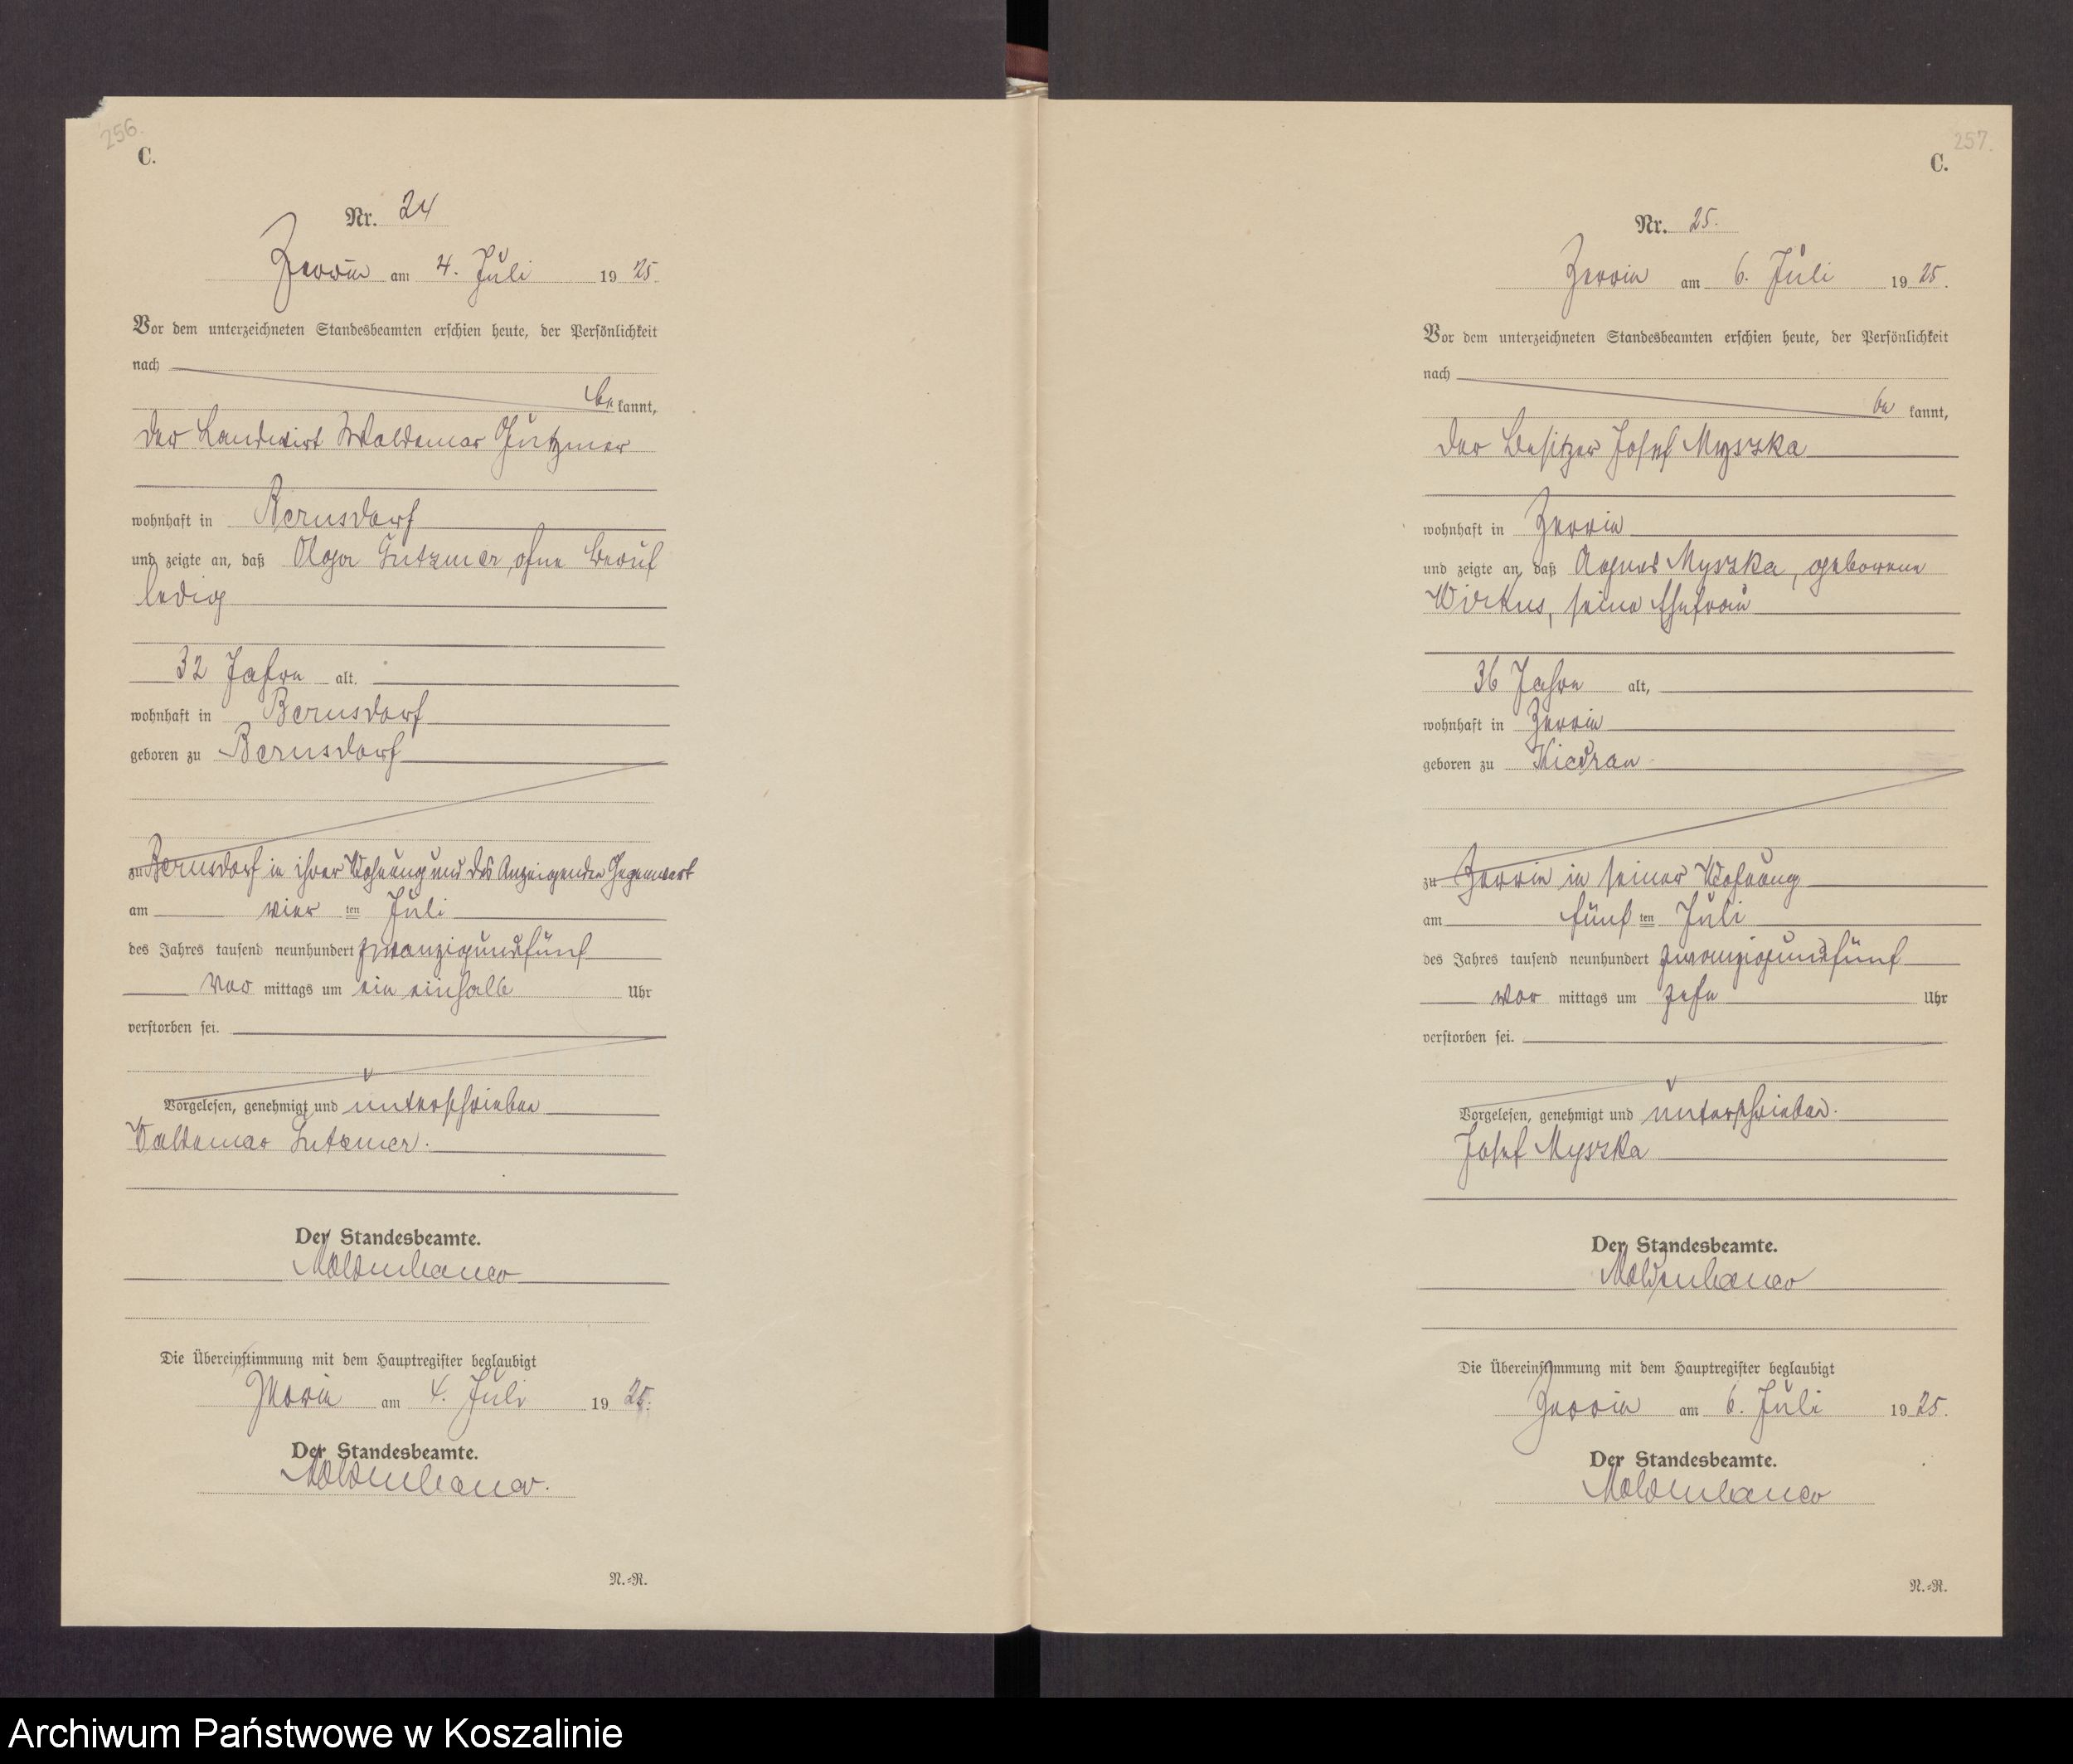 256.
C.
Nr. 24
Zerrin am 4. Juli 1925.
Vor dem unterzeichneten Standesbeamten erschien heute, der Persönlichkeit
nach
be kannt,
der Landwirt Waldemar Gutzmer
wohnhaft in Bernsdorf
und zeigte an, daß Olga Gutzmer, ohne Beruf
ledig
32 Jahre alt.
wohnhaft in Bernsdorf
geboren zu Bernsdorf
zu Bernsdorf in ihrer Wohnung und des Anzeigenden Gegenwart
am vier ten Juli
des Jahres tausend neunhundert zwanzigundfünf
vor mittags um ein einhalb Uhr
verstorben sei.
Vorgelesen, genehmigt und unterschrieben
Waldemar Gutzmer.
Der Standesbeamte.
Die Übereinstimmung mit dem Hauptregister beglaubigt
Zerrin am 4. Juli 1925.
Der Standesbeamte.
N.=R.
257.
C.
Nr. 25.
Zerrin am 6. Juli 1925.
Vor dem unterzeichneten Standesbeamten erschien heute, der Persönlichkeit
nach
be kannt,
der Besitzer Josef Myszka
wohnhaft in Zerrin
und zeigte an, daß Agnes Myszka, geborene
Wirkus, seine Ehefrau
36 Jahre alt,
wohnhaft in Zerrin
geboren zu Kiedrau
zu Zerrin in seiner Wohnung
am fünf ten Juli
des Jahres tausend neunhundert zwanzigundfünf
vor mittags um zehn Uhr
verstorben sei.
Vorgelesen, genehmigt und unterschrieben.
Josef Myszka
Der Standesbeamte.
Die Übereinstimmung mit dem Hauptregister beglaubigt
Zerrin am 6. Juli 1925.
Der Standesbeamte.
N.=R.
Archiwum Państwowe w Koszalinie